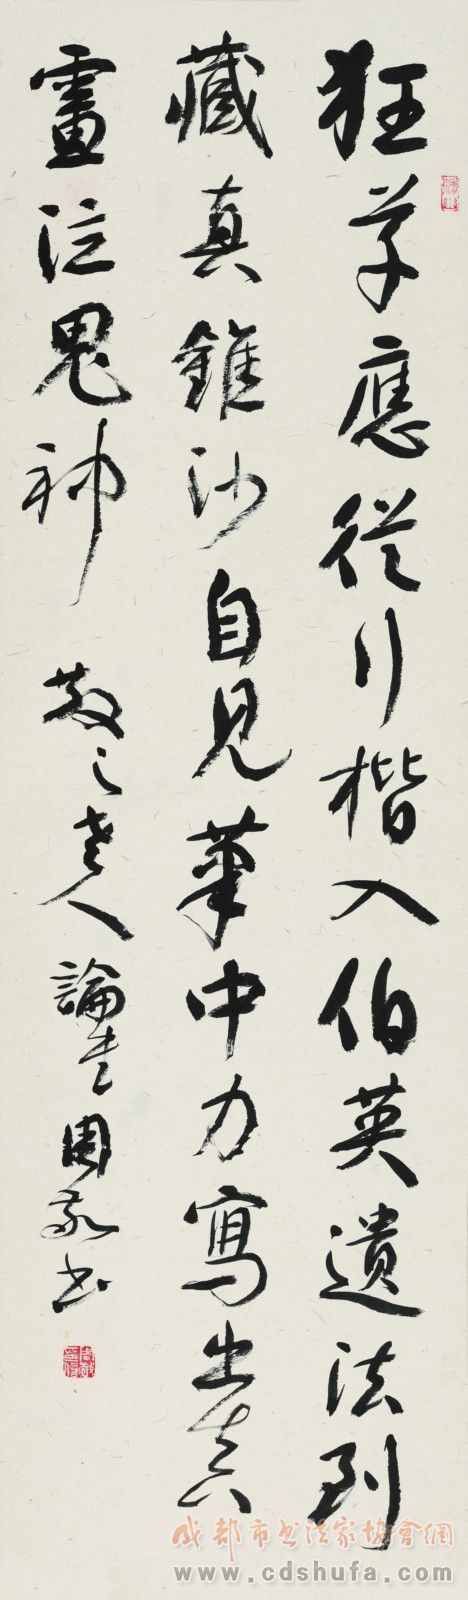 狂草應從行楷入伯英遺法到
藏真錐沙自見筆中力寫出真
靈泣鬼神 散之老人論書周書
成都市书法家協會網
www.cdshufa.com